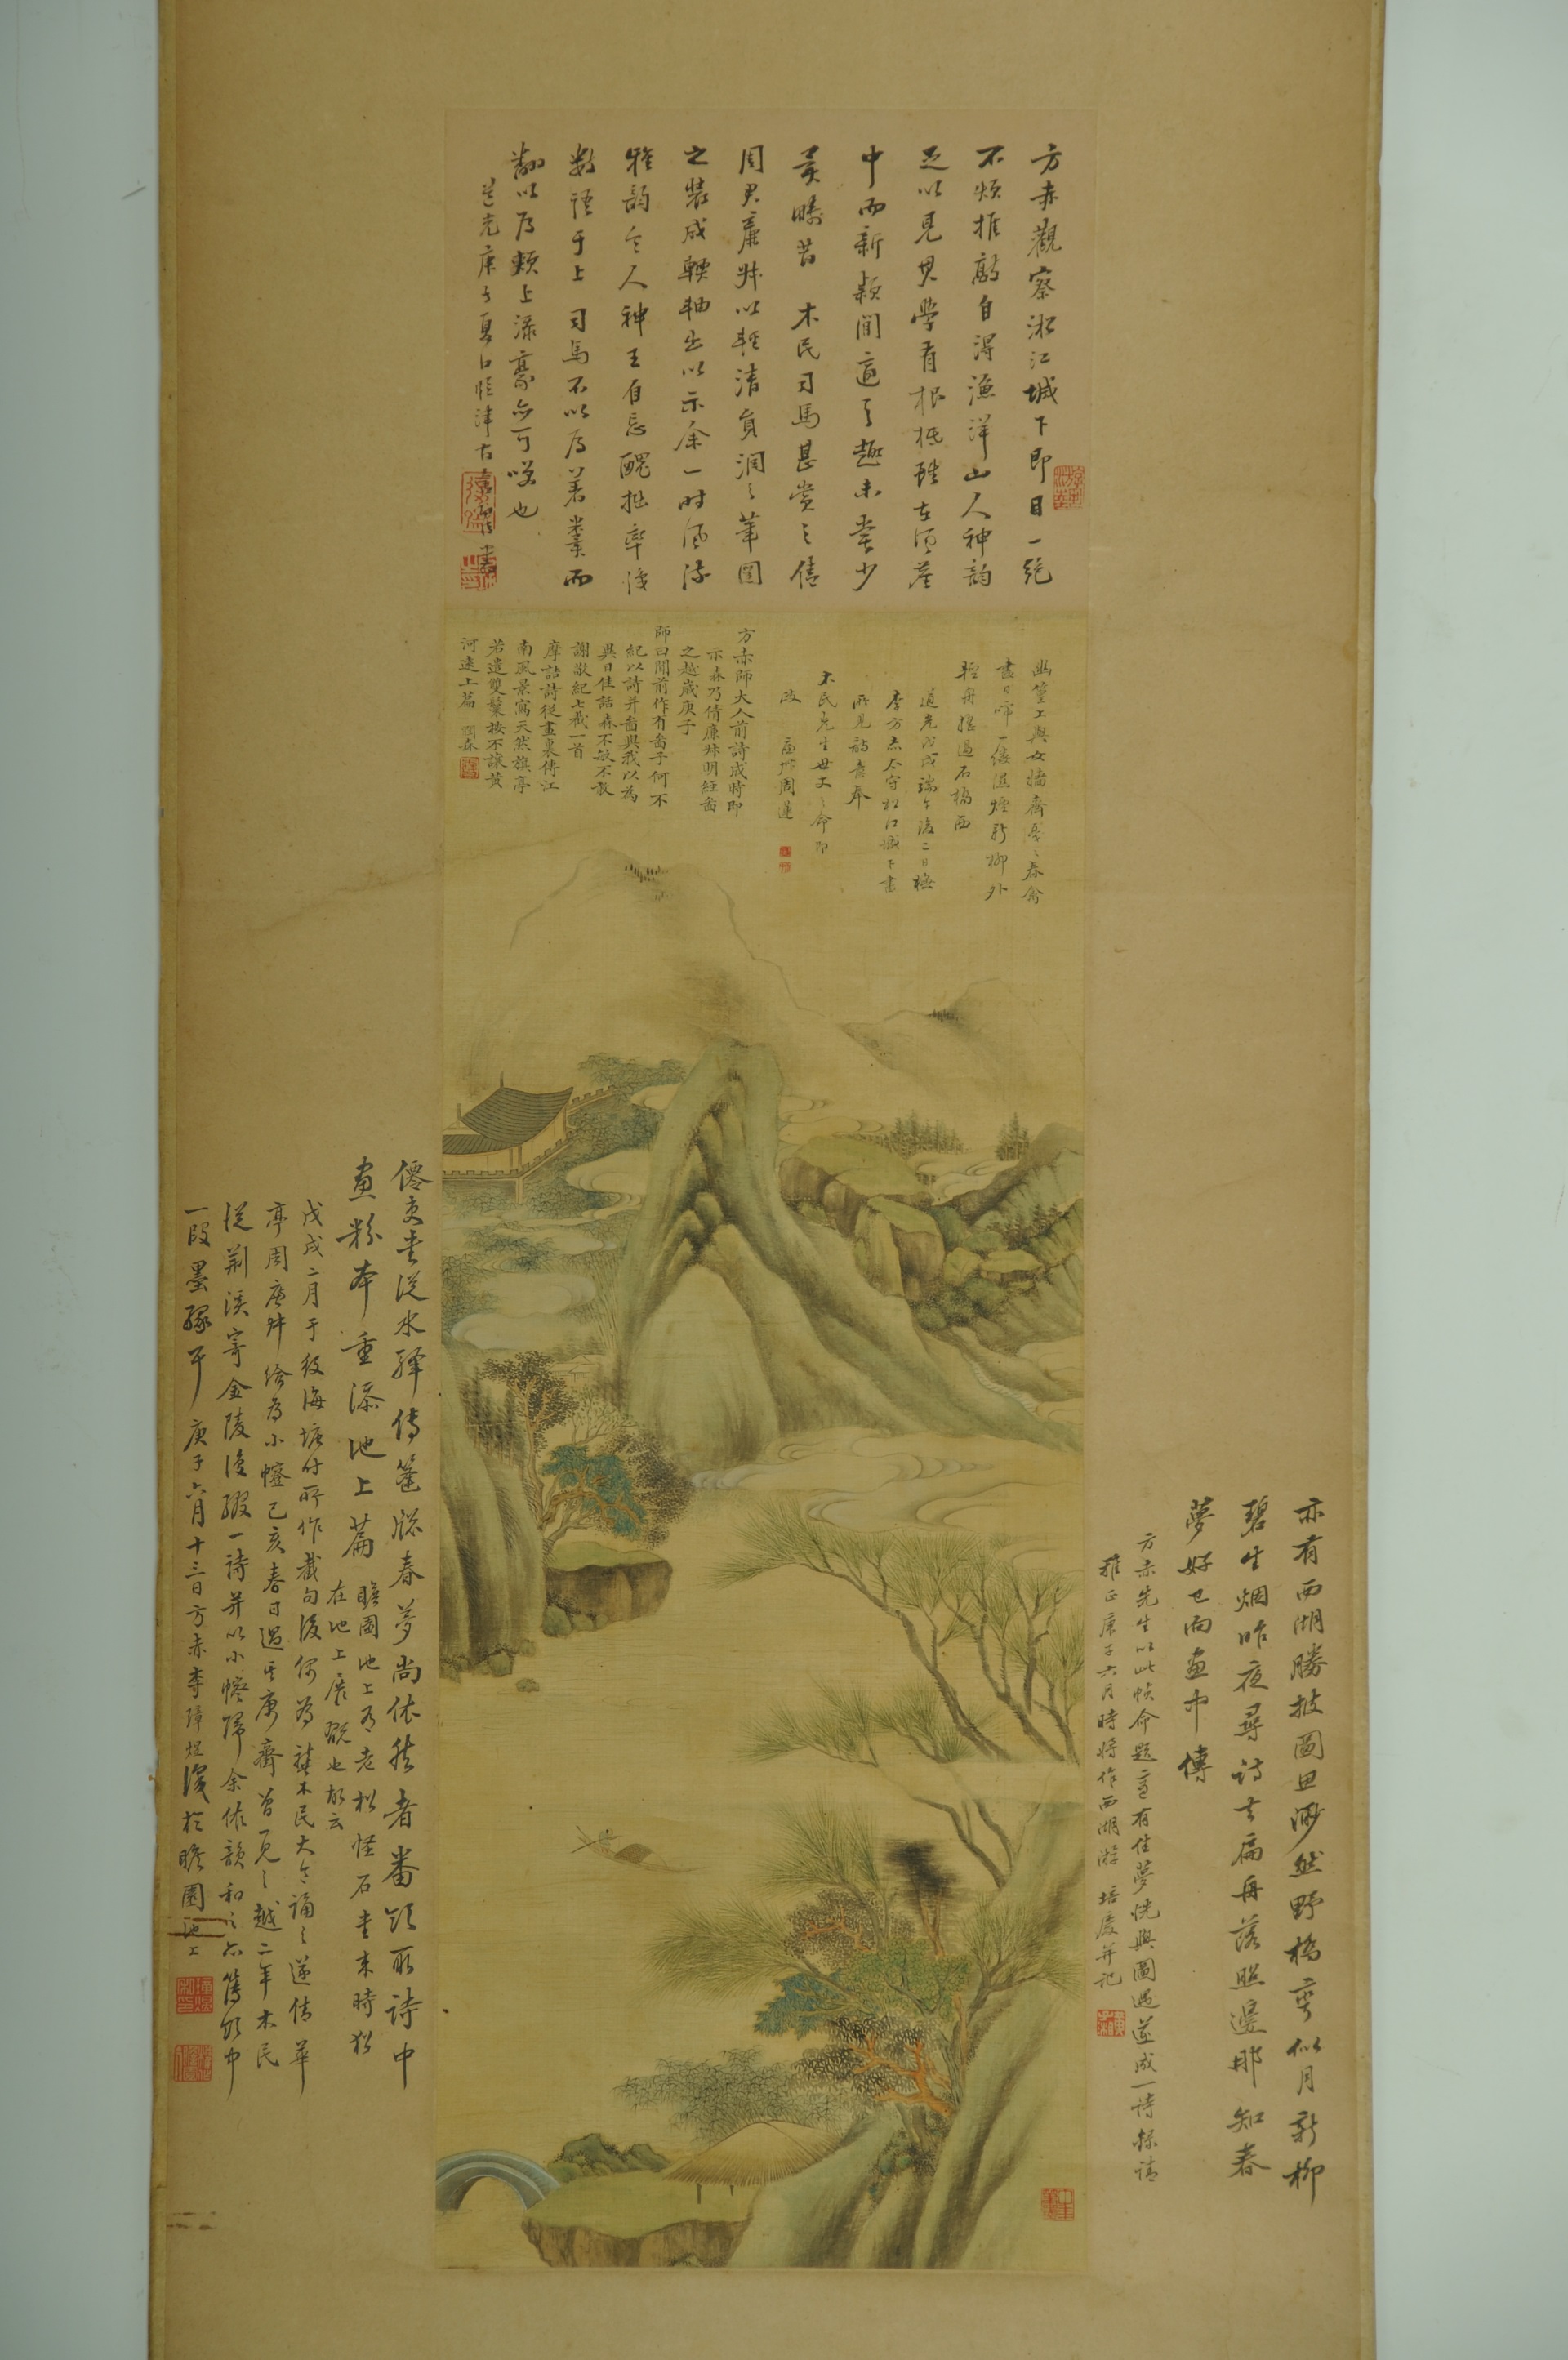 方赤觀察淞江城下即目一絕
不煩推敲自得漁洋山人神韻
足以見其學有根柢
中而新穎閒適之趣未嘗少
異疇昔木民司馬甚賞之倩
周君廉叔以輕清員潤之筆圖
之裝成軸出以示余一時風流
雅韻令人神王自忘醜拙率綴
數語于上司馬不以為著糞而
翻以為頰上添豪亦可噱也
道光庚子夏日
幽篁上與女牆齊
春禽
盡日啼一僂濕煙新柳外
輕舟搖過石橋西
道光戊戌端午後二日橅
李方赤太守松江城下書
所見詩意奉
木民先生世丈之命即
政
周蓮
方赤師大人前詩成時即
示森乃倩廉叔明經畫
之越歲庚子
師曰閒前作有畬子何不
紀以詩并畬與我以為
異日佳話森不敏不敢
謝敬紀七截一首
摩詰詩從畫裏傳江
南風景寫天然旗亭
若遣雙鬟按不讓黃
河遠上篇
僊吏書從水驛傳篷牕春夢尚依然者番
所詩中
畫粉本重添池上篇瞻園池上有老松怪石畫來時松
在池上展翫也故云
戊戌二月于役海塘
所作截句後
為
木民大令誦之遂倩華
亭周廉叔繪為小幢己亥春日過
齋曾一見之越二年木民
從荊溪寄金陵後綴一詩并以小幢歸余依韻和之
一段墨緣耳庚子六月十三日方赤李璋煜識於瞻園池上
亦有西湖勝披圖思渺然野橋彎似月新柳
碧生烟昨夜尋詩去扁舟落照邊那知春
夢好已向畫中傳
方赤先生以此幀命題適有佳夢恍與圖遇遂成一詩錄請
雅正庚子六月時將作西湖游培慶并記